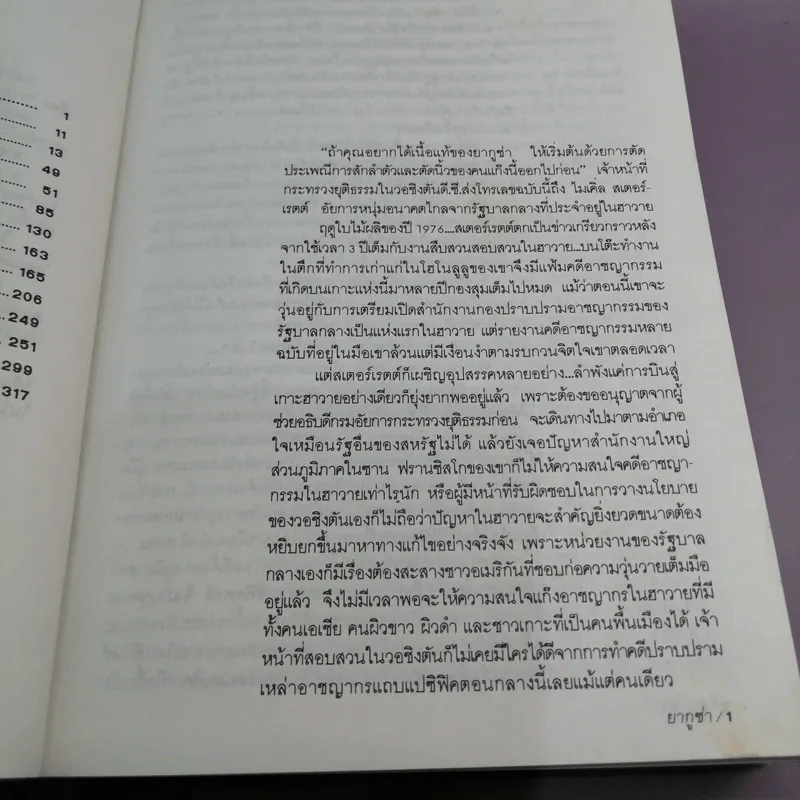 1
11
13
49
51
85
130
163
165
206
249
251
299
317
"ถ้าคุณอยากได้เนื้อแท้ของยากูซ่า ให้เริ่มต้นด้วยการตัด
ประเพณีการสักลำตัวและตัดนิ้วของคนแก๊งนี้ออกไปก่อน" เจ้าหน้าที่
กระทรวงยุติธรรมในวอชิงตันดี.ซี.ส่งโทรเลขฉบับนี้ถึง ไมเคิ่ล สเตอร์-
เรตต์ อัยการหนุ่มอนาคตไกลจากรัฐบาลกลางที่ประจำอยู่ในฮาวาย
ฤดูใบไม้ผลิของปี 1976....สเตอร์เรตต์ตกเป็นข่าวเกรียวกราวหลัง
จากใช้เวลา 3 ปีเต็มกับงานสืบสวนสอบสวนในฮาวาย...บนโต๊ะทำงาน
ในตึกที่ทำการเก่าแก่ในโฮโนลูลูของเขาจึงมีแฟ้มคดีอาชญากรรม
ที่เกิดบนเกาะแห่งนี้มาหลายปีกองสุมเต็มไปหมด แม้ว่าตอนนี้เขาจะ
วุ่นอยู่กับการเตรียมเปิดสำนักงานกองปราบปรามอาชญากรรมของ
รัฐบาลกลางเป็นแห่งแรกในฮาวาย แต่รายงานคดีอาชญากรรมหลาย
ฉบับที่อยู่ในมือเขาล้วนแต่มีเงื่อนงำตามรบกวนจิตใจเขาตลอดเวลา
แต่สเตอร์เรตต์ก็เผชิญอุปสรรคหลายอย่าง...ลำพังแค่การบินสู่
เกาะฮาวายอย่างเดียวก็ยุ่งยากพออยู่แล้ว เพราะต้องขออนุญาตจากผู้
ช่วยอธิบดีกรมอัยการกระทรวงยุติธรรมก่อน จะเดินทางไปมาตามอำเภอ
ใจเหมือนรัฐอื่นของสหรัฐไม่ได้ แล้วยังเจอปัญหาสำนักงานใหญ่
ส่วนภูมิภาคในซาน ฟรานซิสโกของเขาก็ไม่ให้ความสนใจคดีอาชญา-
กรรมในฮาวายเท่าไรนัก หรือผู้มีหน้าที่รับผิดชอบในการวางนโยบาย
ของวอชิงตันเองก็ไม่ถือว่าปัญหาในฮาวายจะสำคัญยิ่งยวดขนาดต้อง
หยิบยกขึ้นมาหาทางแก้ไขอย่างจริงจัง เพราะหน่วยงานของรัฐบาล
กลางเองก็มีเรื่องต้องสะสางชาวอเมริกันที่ชอบก่อความวุ่นวายเต็มมือ
อยู่แล้ว จึงไม่มีเวลาพอจะให้ความสนใจแก๊งอาชญากรในฮาวายที่มี
ทั้งคนเอเชีย คนผิวขาว ผิวดำ และชาวเกาะที่เป็นคนพื้นเมืองได้ เจ้า
หน้าที่สอบสวนในวอชิงตันก็ไม่เคยมีใครได้ดีจากการทำคดีปราบปราม
เหล่าอาชญากรแถบแปซิฟิคตอนกลางนี้เลยแม้แต่คนเดียว
ยากูซ่า / 1